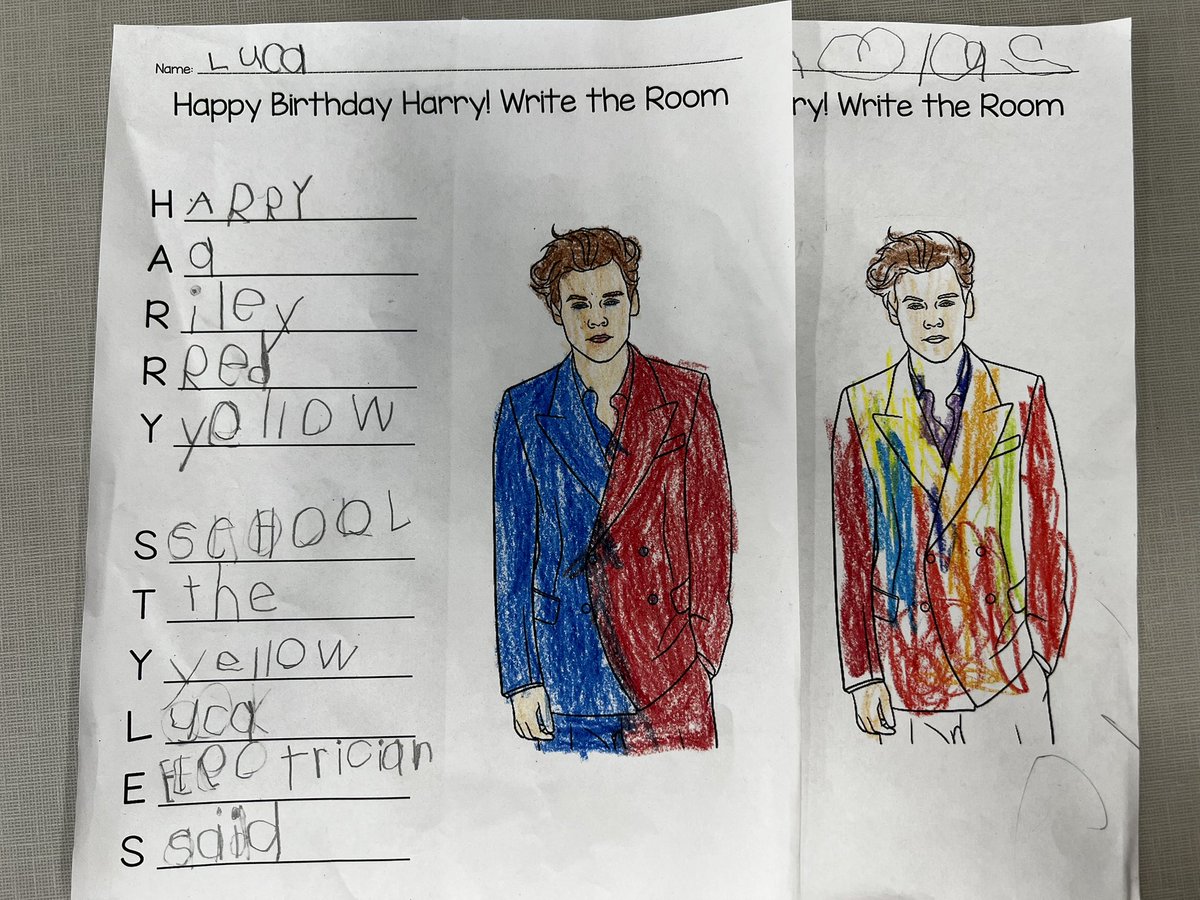 Name: Luca
Happy Birthday Harry! Write the Room
H ARRY
A a
R iley
R Red
Y yollow
S SCHOOL
T the
Y yellow
L uca
E Electrician
S said
ry! Write the Room